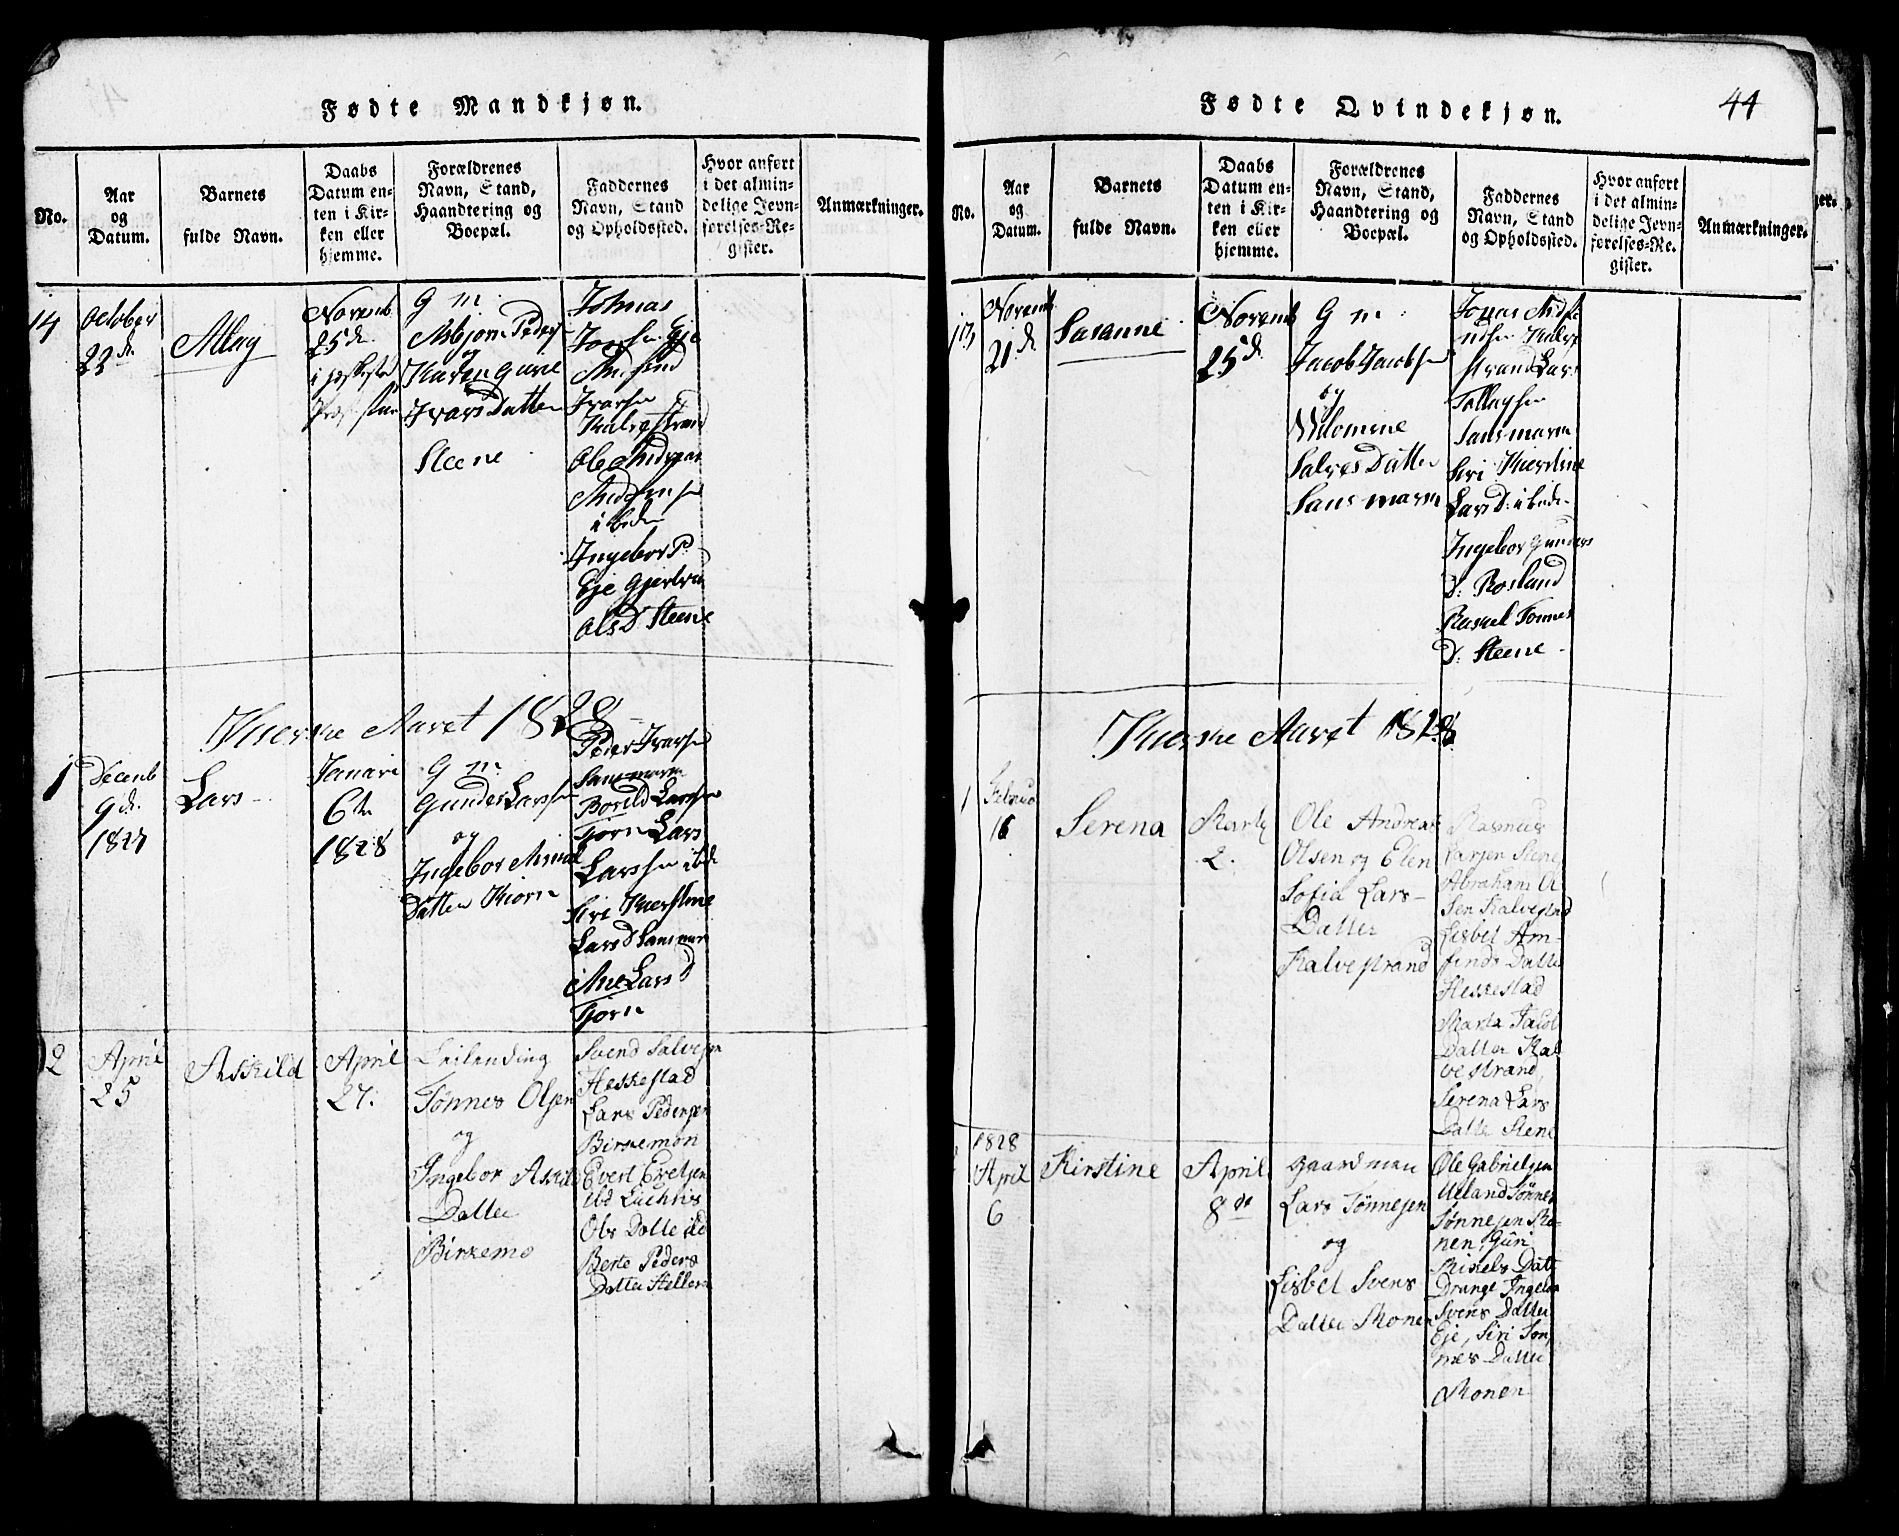 Fødte Mandkjøn.
No.
Aar
og
Datum.
Barnets
fulde Navn.
Daabs
Datum en-
ten i Kir-
ken eller
hjemme.
Forældrenes
Navn, Stand,
Haandtering og
Boepæl.
Faddernes
Navn, Stand
og Opholdssted.
Hvor anført
i det almin-
delige Jevn-
førelses-Re-
gister.
Anmærkninger.
14
October
22 d.
Novemb
25 d.
G m
Asbjorn Peders
Karen
Ivars Datter
Steene
Tobias
Eje
Ivarsen
Ole Andreas
i bed
Ingebor P
Eje Gjertrud
Ols D Steene
Aaret 1828
1
Decemb
9 d.
1827
Lars
Januari
6te
1828
G m
Gunder Larssen
og
Ingebor
Datter
Peder Ivarsen
Larssen
Lars
Larssen ibd
Siri Kierstine
Lars D
Ane Lars D
Tjorn
2
April
25
Askild
April
27.
Leilending
Tønnes Olsen
og
Ingebor Askil
Datter
Birkemo
Svend Salvesen
Heskestad
Lars Pedersen
Birkemon
Evert Evetsen
ibd
Ols Datte ibd
Berte Peders
Datter
Fødte Qvindekjøn.
44
No.
Aar
og
Datum.
Barnets
fulde Navn.
Daabs
Datum en-
ten i Kir-
ken eller
hjemme.
Forældrenes
Navn, Stand,
Haandtering og
Boepæl.
Faddernes
Navn, Stand
og Opholdssted.
Hvor anført
i det almin-
delige Jevn-
førelses-Re-
gister.
Anmærkninger.
Novemb
21 d.
Susanne
Novemb
25 d.
G m
Jacob Jacobsen
og
Salves Datter
Jonas
strand Lars
Tollagsen
Siri Kierstine
Lars D: ibede
Ingebor Gunders
D: Rosland
Rakel Tonnes
D: Steene
Aaret 1828
1
Februa
16
Serena
Marty
2.
Ole Andreas
Olsen og Elen
Sofia Lars-
Datter
Kalvestrand
Rasmus
Stene
Abraham Ol
sen Kalvestrad
Lisbet Am-
finds Datte
Heskestad
Marta Jacob
Datter Kal
vestrand,
Serena Lars
Datte Stene
1828
April
6
Kirstine
April
8de
gaardman
Lars Tønnesen
og
Lisbet Svens
Datter Monen
Ole Gabrielsen
Ueland Tønnes
Tønnesen Mo-
nen, Guri
Mikels Datt
Drange Ingebor
Svens Datter
Eje, Siri Tøn
nes Datter
Monen